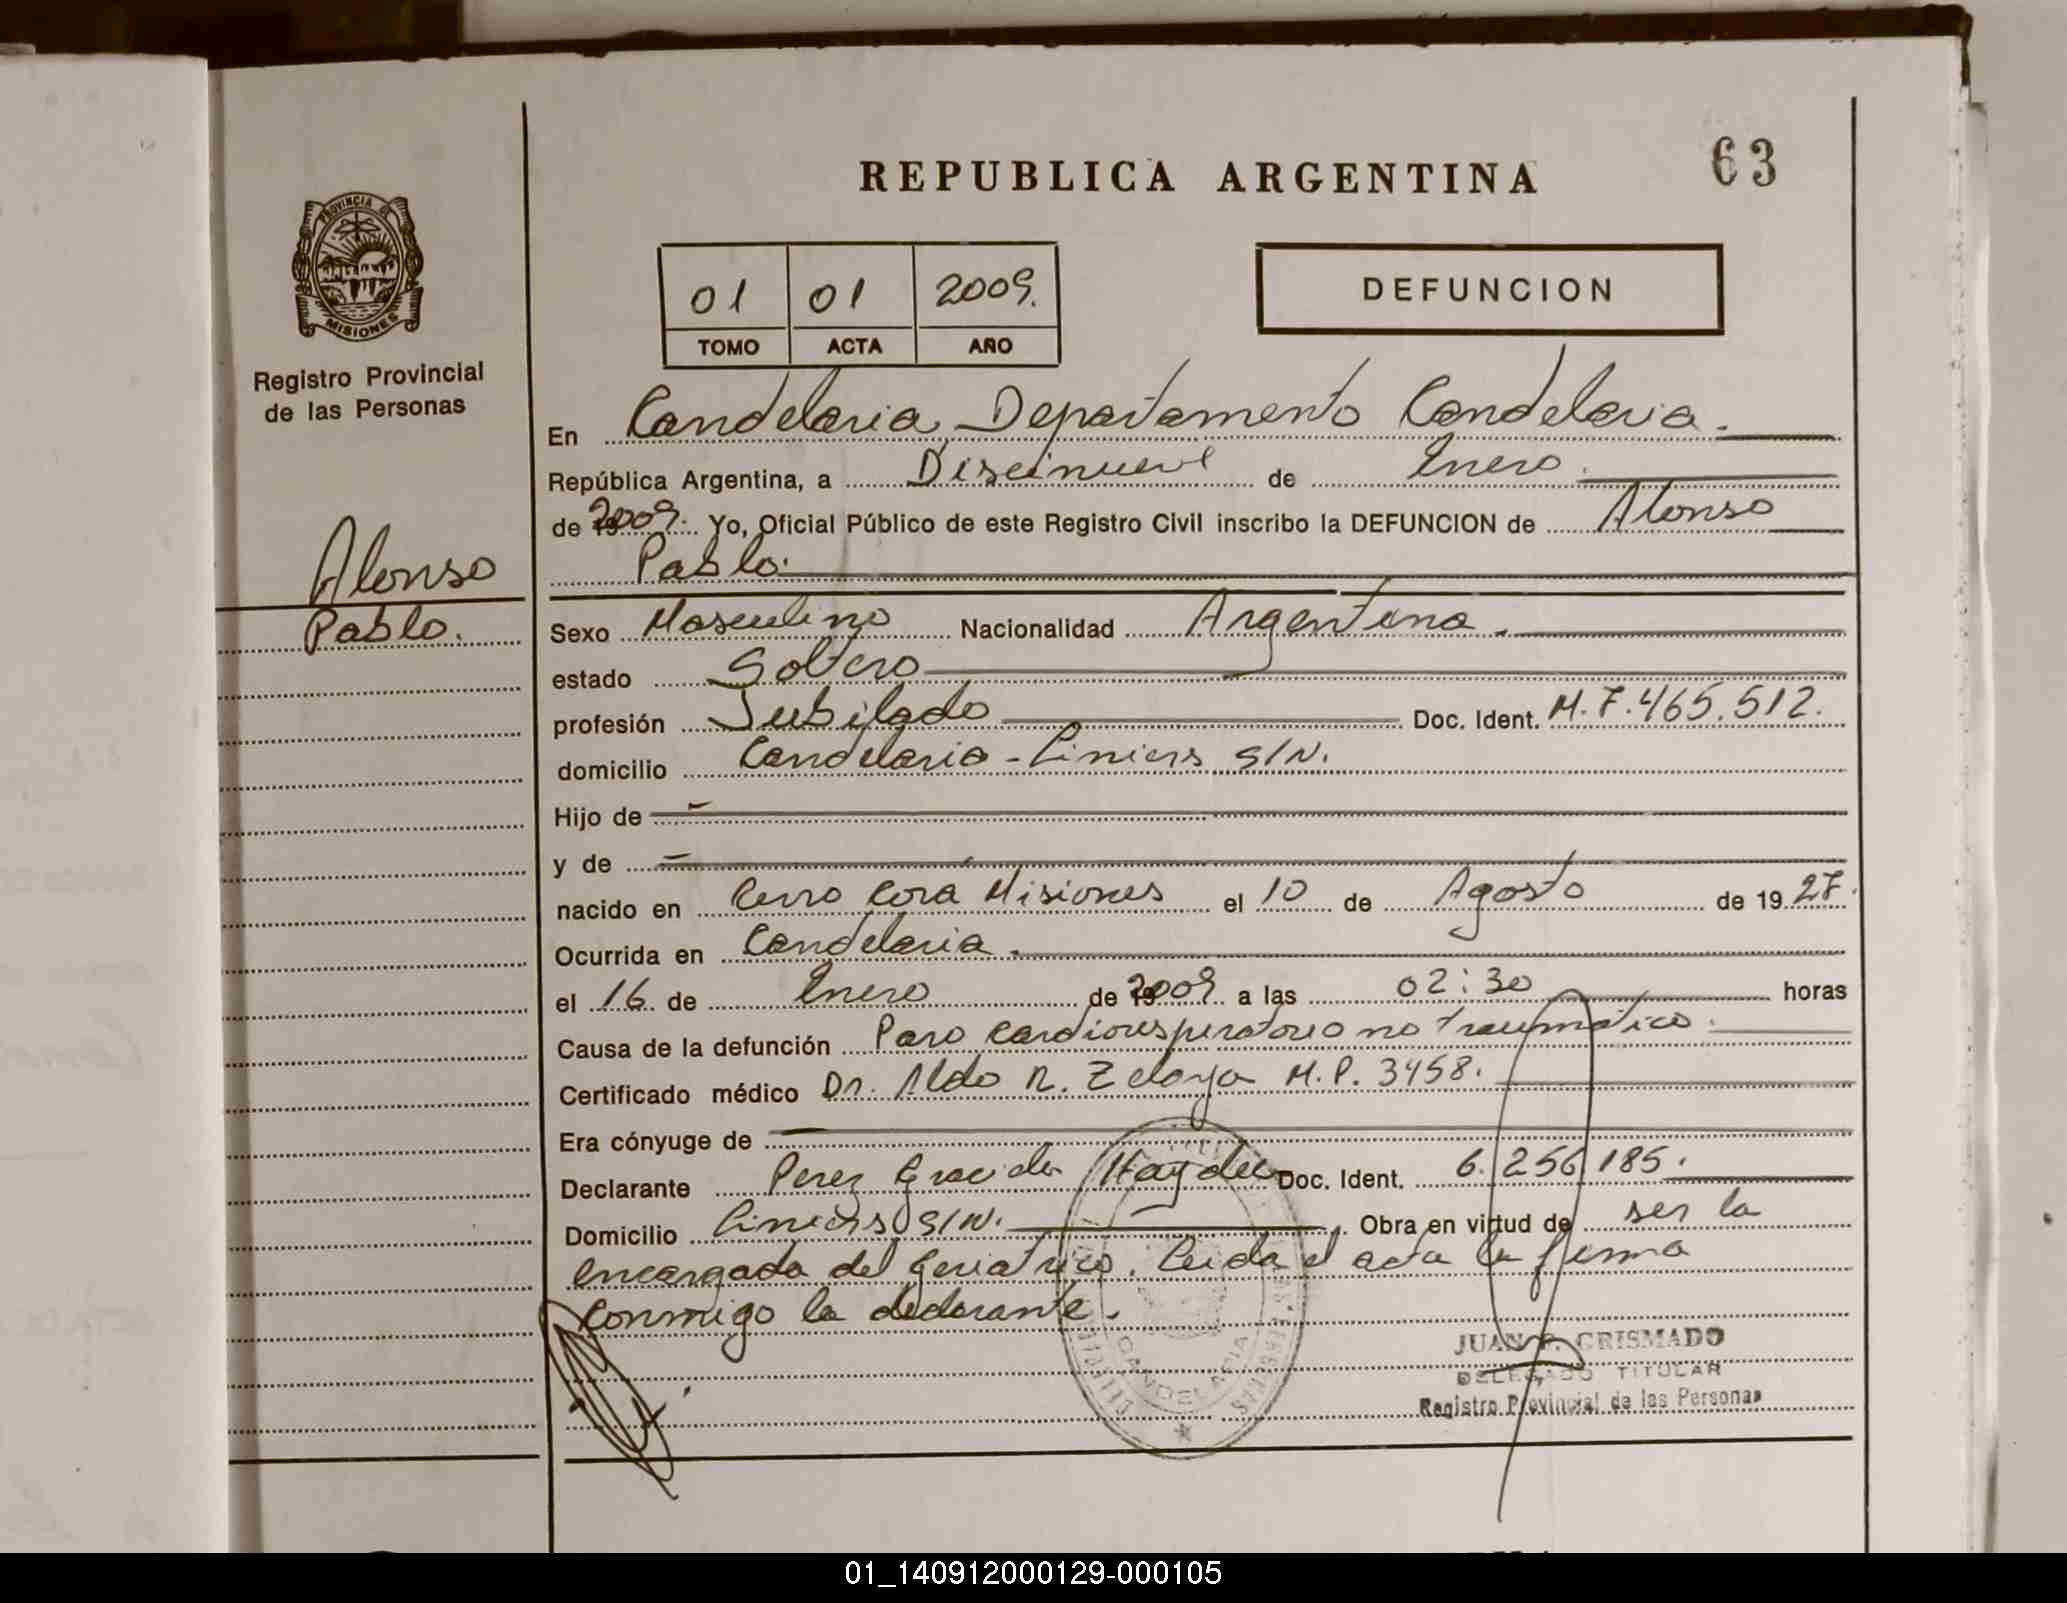 REPUBLICA ARGENTINA
63
PROVINCIA DE
MISIONES
Registro Provincial
de las Personas
01 01 2009.
TOMO ACTA AÑO
DEFUNCION
En Candelaria Departamento Candelaria.
República Argentina, a Diecinueve de Enero.
de 2009. Yo, Oficial Público de este Registro Civil inscribo la DEFUNCION de Alonso
Pablo.
Alonso
Pablo.
Sexo Masculino Nacionalidad Argentina.
estado Soltero
profesión Jubilado Doc. Ident. M. 7.465.512.
domicilio Candelaria - Liniers S/N.
Hijo de -
y de -
nacido en Cerro Cora Misiones el 10 de Agosto de 1927.
Ocurrida en Candelaria.
el 16 de Enero de 2009 a las 02:30 horas
Causa de la defunción Paro cardiorespiratorio no traumático.
Certificado médico Dr. Aldo R. Zelaya M.P. 3458.
Era cónyuge de
Declarante Perez Graciela Haydee Doc. Ident. 6.256.185.
Domicilio Liniers S/N. Obra en virtud de ser la
encargada del Geriatrico. Leida el acta la firma
conmigo la declarante.
CANDELARIA
JUAN CRISMADO
DELEGADO TITULAR
Registro Provincial de las Personas
01_140912000129-000105